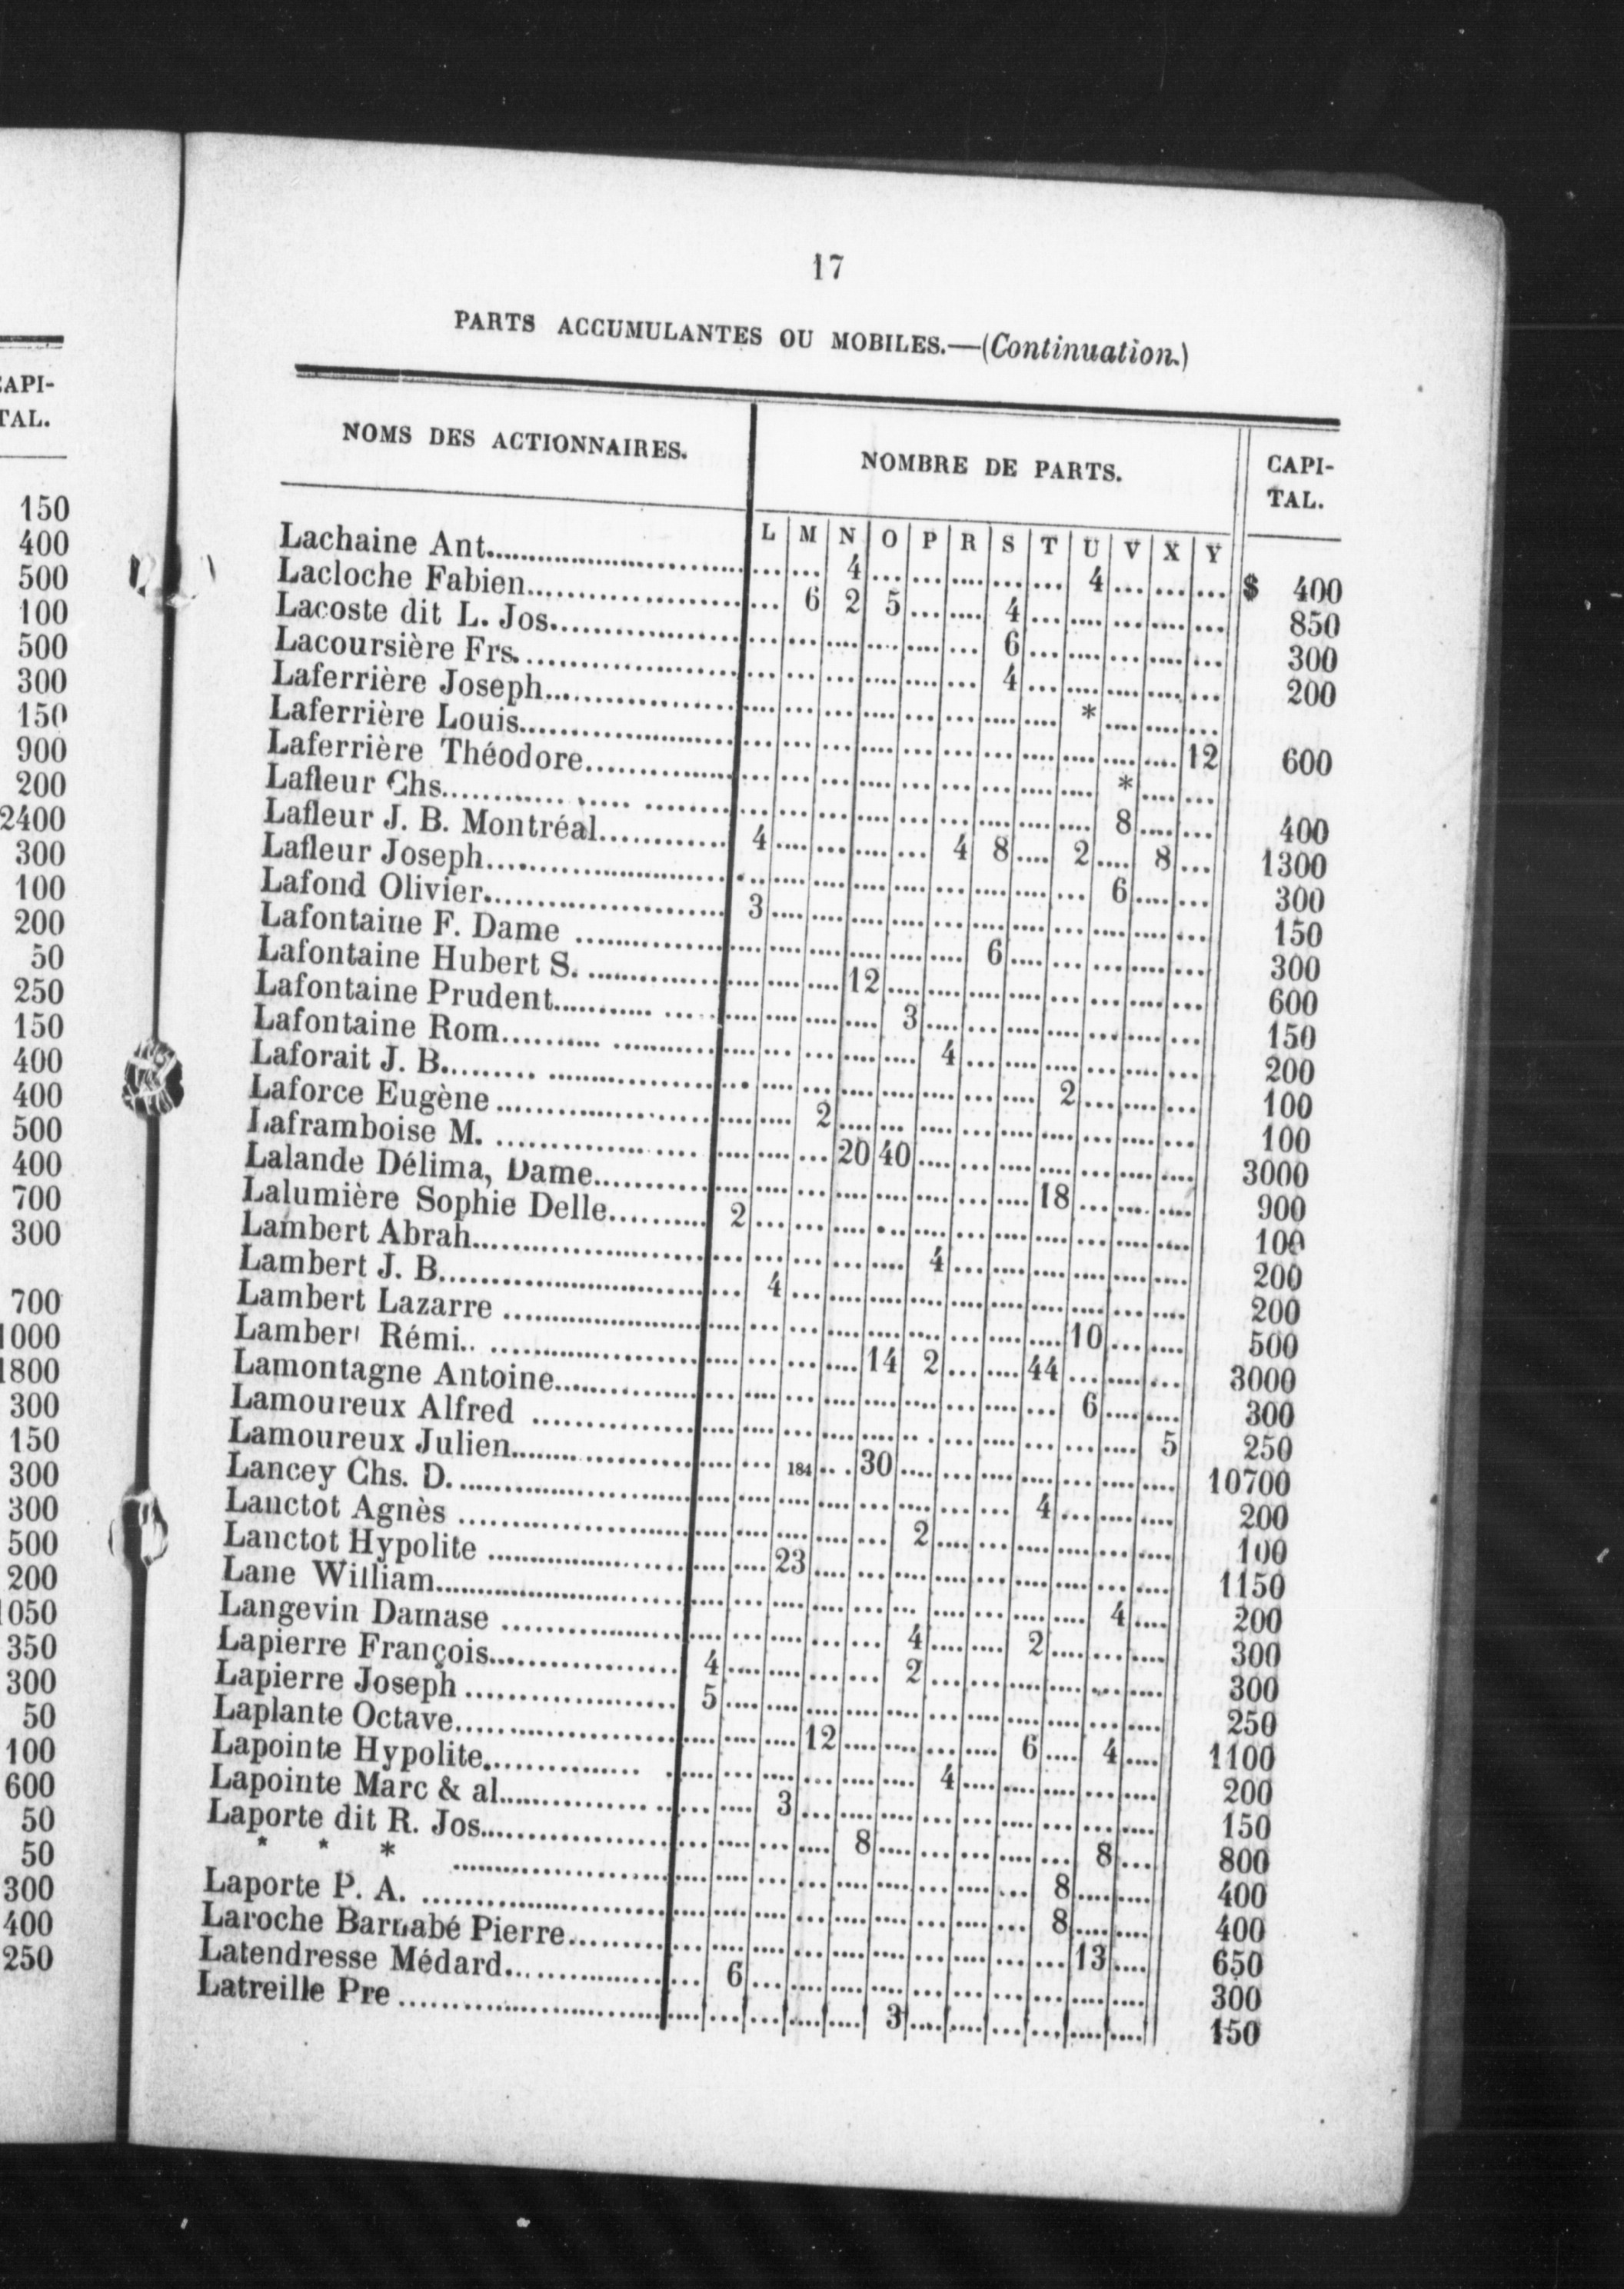 CAPI-
TAL.
150
400
500
100
500
300
150
900
200
2400
300
100
200
50
250
150
400
400
500
400
700
300
700
1000
1800
300
150
300
300
500
200
1050
350
300
50
100
600
50
50
300
400
250
17
PARTS ACCUMULANTES OU MOBILES.—(Continuation.)
NOMS DES ACTIONNAIRES. NOMBRE DE PARTS. CAPI-
TAL.
L M N O P R S T U V X Y
Lachaine Ant. 4 4 $ 400
Lacloche Fabien 6 2 5 4 850
Lacoste dit L. Jos. 6 300
Lacoursière Frs. 4 200
Laferrière Joseph *
Laferrière Louis 12 600
Laferrière Théodore *
Lafleur Chs. 8 400
Lafleur J. B. Montréal 4 4 8 2 8 1300
Lafleur Joseph 6 300
Lafond Olivier 3 150
Lafontaine F. Dame 6 300
Lafontaine Hubert S. 12 600
Lafontaine Prudent 3 150
Lafontaine Rom. 4 200
Laforait J. B. 2 100
Laforce Eugène 2 100
Laframboise M. 20 40 3000
Lalande Délima, Dame 18 900
Lalumière Sophie Delle 2 100
Lambert Abrah. 4 200
Lambert J. B. 4 200
Lambert Lazarre 10 500
Lambert Rémi 14 2 44 3000
Lamontagne Antoine 6 300
Lamoureux Alfred 5 250
Lamoureux Julien 184 30 10700
Lancey Chs. D. 4 200
Lanctot Agnès 2 100
Lanctot Hypolite 23 1150
Lane William 4 200
Langevin Damase 4 2 300
Lapierre François 4 2 300
Lapierre Joseph 5 250
Laplante Octave 12 6 4 1100
Lapointe Hypolite 4 200
Lapointe Marc & al. 3 150
Laporte dit R. Jos. 8 8 800
* * * 8 400
Laporte P. A. 8 400
Laroche Barnabé Pierre 13 650
Latendresse Médard 6 300
Latreille Pre 3 150